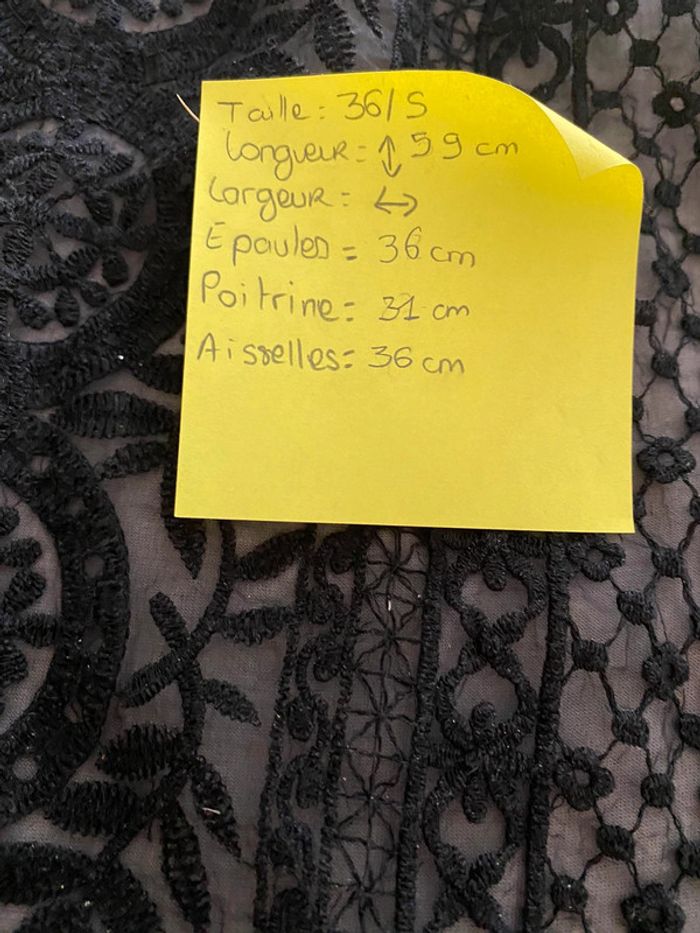 Taille : 36/S
Longueur = ↕ 59 cm
Largeur = ↔
Epaules = 36 cm
Poitrine = 31 cm
Aisselles = 36 cm